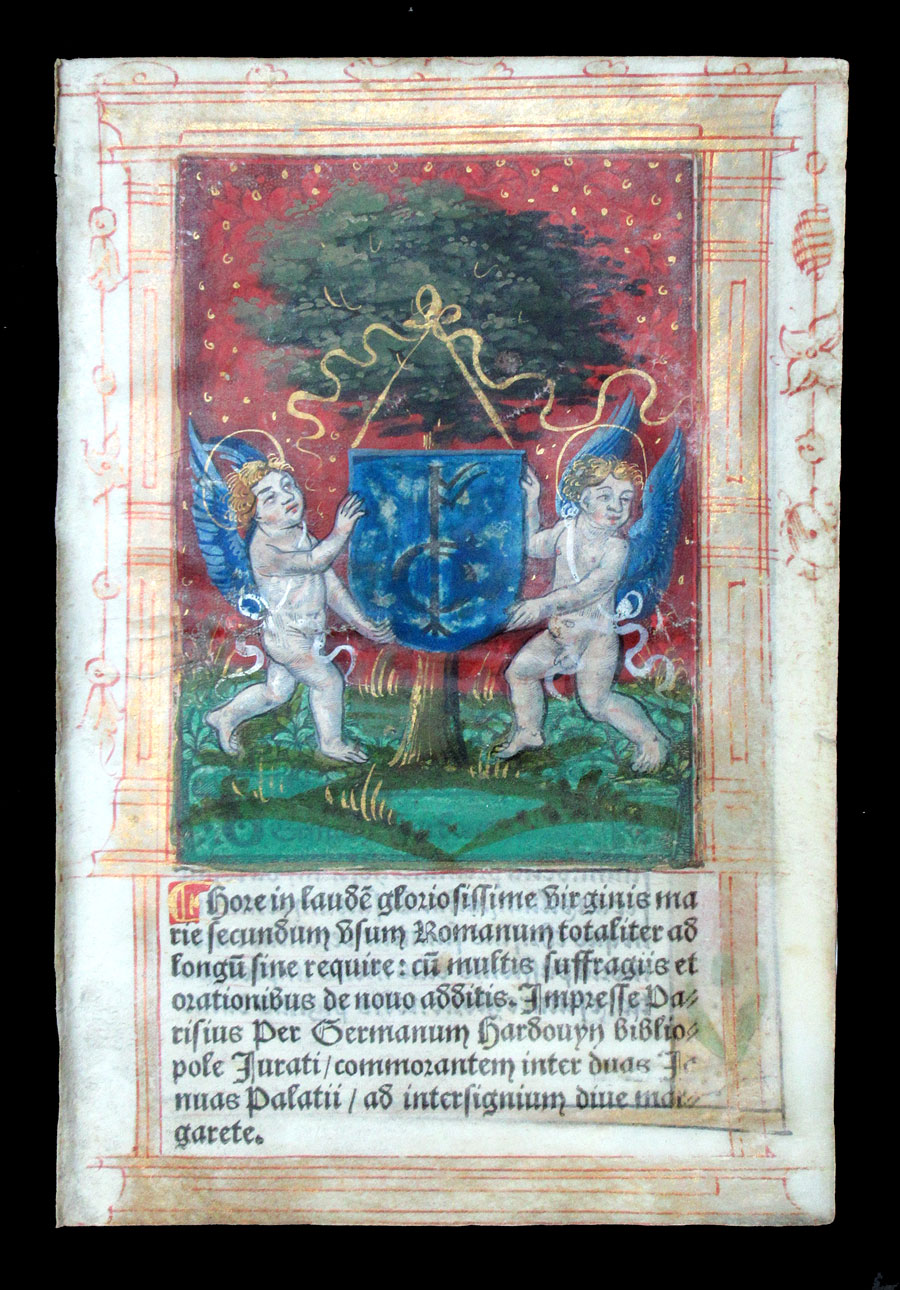 Hore in laudē gloriosissime virginis ma
rie secundum vsum Romanum totaliter ad
longū sine require: cū multis suffragiis et
orationibus de nouo additis. Impresse Pa⸗
risius Per Germanum Hardouyn biblio⸗
pole Jurati / commorantem inter duas Ja
nuas Palatii / ad intersignium diue mar⸗
garete.